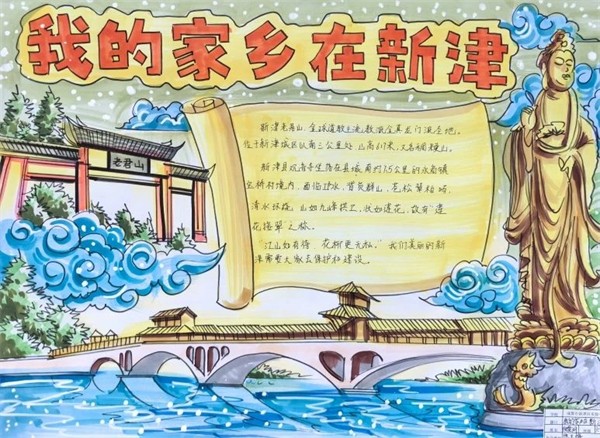 我的家乡在新津
老君山
新津老君山,全球道教主流教派全真龙门派圣地。
位于新津城区以南三公里处,山高617米,又名稠稉山。
新津县观音寺坐落在县城南约7.5公里的永商镇
宝桥村境内,面临邛水,背负群山,苍松翠柏
清水环绕,山如九峰拱卫,状如莲花,故有"莲
花接翠"之称。
"江山如有待 花柳更无私。"我们美丽的新
津需要大家去保护和建设。